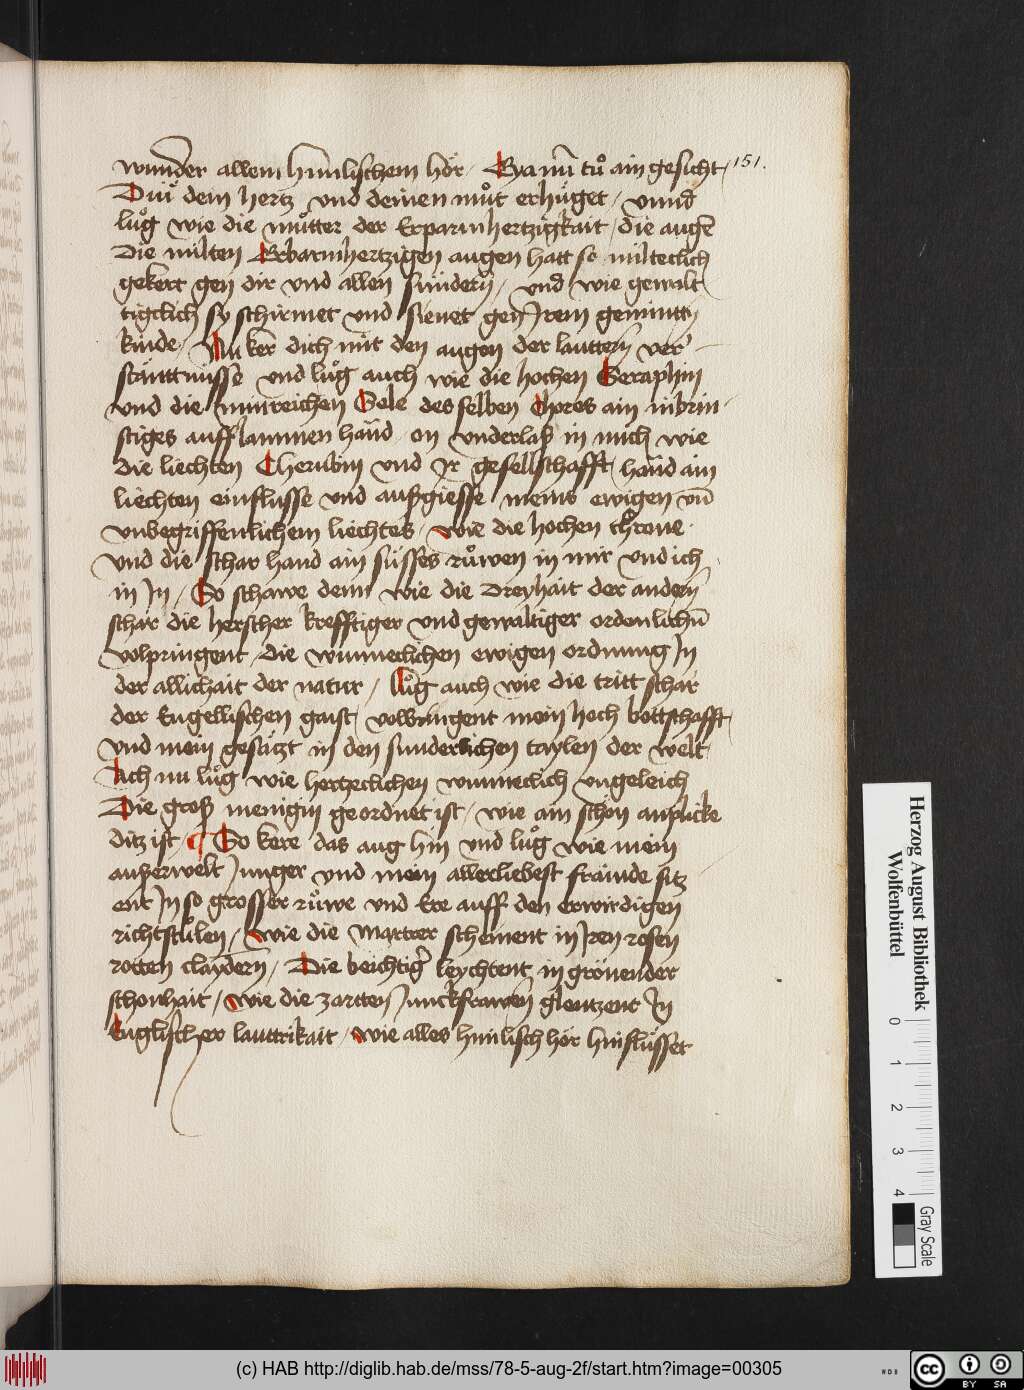 wunder allem himlischem hör · Eya nu͞ tuͦ ain gesicht 151.
Diü dem hertz vnd deinen muͦt erhüget / vnnd
luͦg wie die muͦtter der Erparmhertzigkait / die auge͞
Die milten Erbarmhertzigen augen hatt so milteclich
gekert gen dir vnd allen sündern / vnd wie gewalt
tigclich sy schirmet vnd sienet gen Irem gemintn
kinde / Nu ker dich mit den augen der lauttern ver
stänttnüsse vnd luͦg auch wie die hochen Seraphin
vnd die minreichen Sele des selben Chores ain inbrin
stiges aufflammen hand on vnderlaß in mich wie
die liechten Cherubin vnd Ir gesellschafft / hand ain
liechten einflusse vnd außgiesse meins ewigen vn͞
vnbegriffenlichem liechtes / wie die hochen throne ·
vnd die schar hand ain süsses ruͦwen in mir vnd ich
in In / So schawe denn wie die dreyhait der andern
schar die herscher krefftiger vnd gewaltiger ordenlichn͞
volpringent / die wunneclichen ewigen ordnung In
der allichait der natur / luͦg auch wie die tritt schar
der Engellischen gaist / volbringent mein hoch bottschafft /
vnd mein gesätzt in den sunderlichen taylen der welt
Ach nu luͦg wie herczeclichen wunneclich vngeleich
Die groß menigin geordnet ist / wie ain schön anplicke
ditz ist / ¶ So kere das aug hin vnd luͦg wie mein
außerwelt Iunger vnd mein allerliebest fräinde sitz
ent In so grosser ruͦwe vnd Ere auff den erwirdigen
richtstülen / wie die Martrer scheinent in Iren rosen
rotten claydern / Die beichtig͛ leychtent in grönender
schonhait / wie die zartten Iunckfrawen glentzent In
Englischer lauttrikait / wie alles himlisch hör hinflüsset
Herzog August Bibliothek
Wolfenbüttel
0 1 2 3 4
Gray Scale
(c) HAB http://diglib.hab.de/mss/78-5-aug-2f/start.htm?image=00305
WDB
CC BY SA